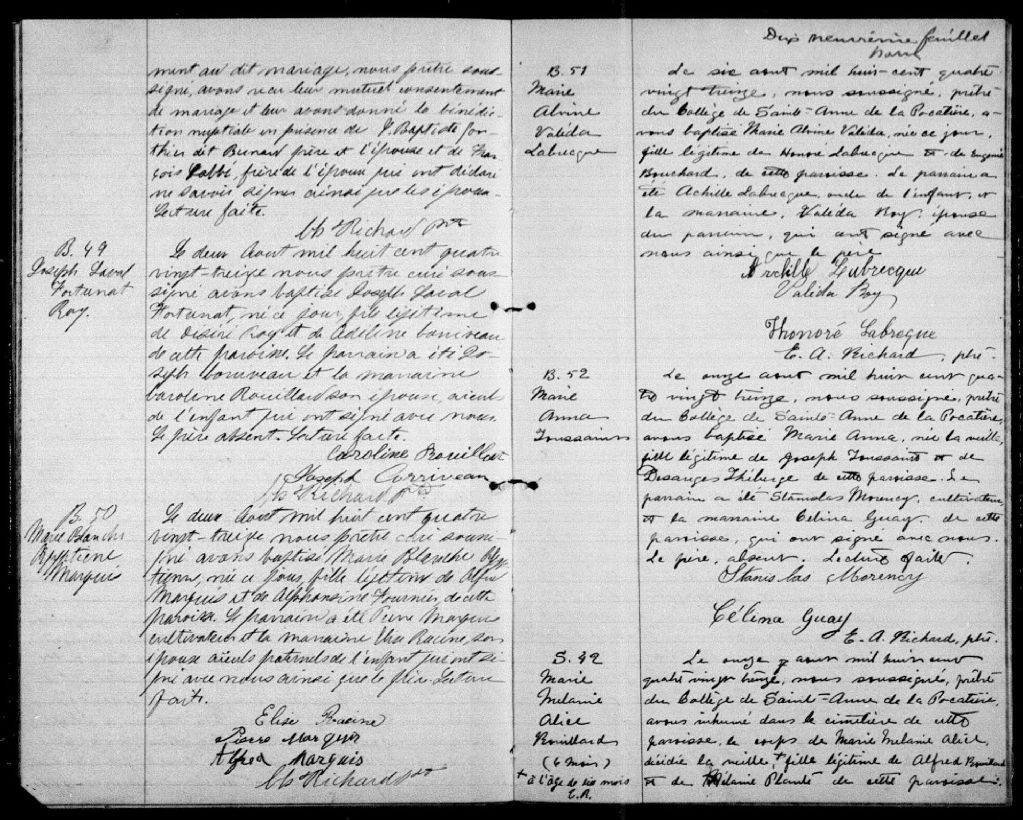 ment au dit mariage, nous prêtre sous-
signé, avons reçu leur mutuel consentement
de mariage et leur avons donné la bénédic-
tion nuptiale en présence de J. Baptiste Gon-
thier dit Bernard père et l'épouse et de Fran
çois frère de l'époux qui ont déclaré
ne savoir signer ainsi que les époux.
Lecture faite.
Richard Ptre
B. 49
Joseph Laval
Fortunat
Roy.
Le deux Aout mil huit cent quatre
vingt-treize nous prêtre curé sous-
signé avons baptisé Joseph Laval
Fortunat, né ce jour, fils légitime
de Désiré Roy et de Adeline Corriveau
de cette paroisse. Le parrain a été Jo-
seph Corriveau et la marraine
Caroline Rouillard son épouse, aieuls
de l'enfant qui ont signé avec nous.
Le père absent. Lecture faite.
Caroline Rouillard
Joseph Corriveau
Richard Ptre
B. 50
Marie Blanche
Marquis
Le deux Aout mil huit cent quatre
vingt-treize nous prêtre curé sous-
signé avons baptisé Marie Blanche
née ce jour, fille légitime de Alfred
Marquis et de Alphonsine Fournier de cette
paroisse. Le parrain a été Pierre Marquis
cultivateur et la marraine Elise Racine, son
épouse aïeuls paternels de l'enfant qui ont si-
gné avec nous ainsi que le père. Lecture
faite.
Elise Racine
Pierre Marquis
Alfred Marquis
Richard Ptre
Dix neuvième feuillet
B. 51
Marie
Alvine
Valéda
Labrecque
Le six aout mil huit-cent quatre
vingt treize, nous soussigné, prêtre
du Collège de Sainte-Anne de la Pocatière, a-
vons baptisé Marie Alvine Valéda, née ce jour,
fille légitime de Honoré Labrecque et de Eugénie
Bouchard, de cette paroisse. Le parrain a
été Achille Labrecque, oncle de l'enfant, et
la marraine, Valéda Roy, épouse
du parrain, qui ont signé avec
nous ainsi que le père.
Archille Labrecque
Valéda Roy
Honoré Labreque
E. A. Richard, ptre.
B. 52
Marie
Anna
Toussaint
Le onze aout mil huit cent qua-
tre vingt treize, nous soussigné, prêtre
du Collège de Sainte-Anne de la Pocatière,
avons baptisé Marie Anna, née la veille,
fille légitime de Joseph Toussaint et de
Desanges Théberge de cette paroisse. Le
parrain a été Stanislas Morency, cultivateur,
et la marraine Célina Guay, de cette
paroisse, qui ont signé avec nous.
Le père, absent. Lecture faite.
Stanislas Morency
Célina Guay
E. A. Richard, ptre.
S. 42
Marie
Mélanie
Alice
Rouillard
(6 mois)
+ à l'âge de six mois
E.R.
Le onze aout mil huit cent
quatre vingt treize, nous soussigné, prêtre
du Collège de Sainte-Anne de la Pocatière,
avons inhumé dans le cimetière de cette
paroisse, le corps de Marie Mélanie Alice,
décédée la veille, + fille légitime de Alfred Rouillard
et de Mélanie Planté de cette paroisse.